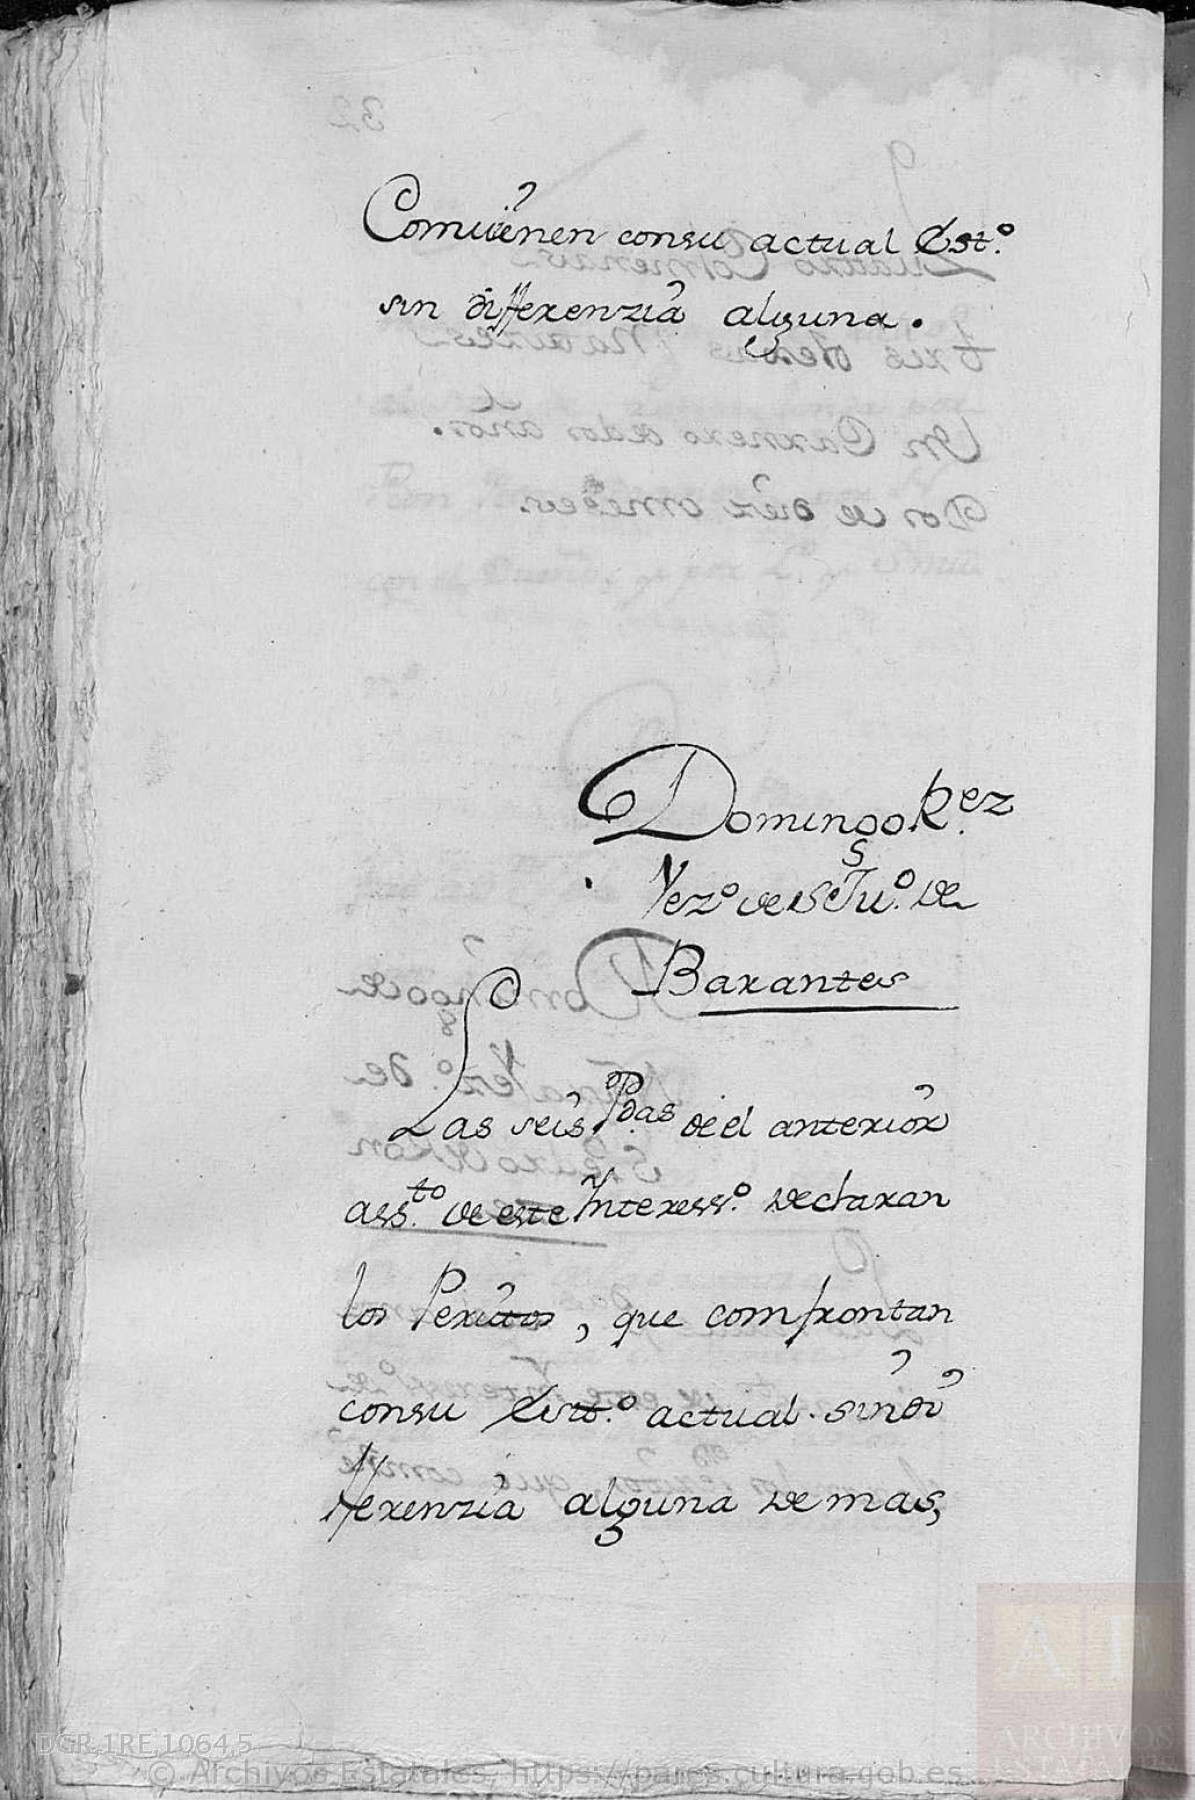 Comvienen consu actual Est.º
sin differenzia alguna.
Domingo R.ez
Vezº de Sⁿ Juº. de
Barantes
Las seis P.das de el anterior
ass.to de este Interess.º declaran
los Peritos, que comfrontan
consu Est.º actual sin di
fferenzia alguna de mas,
DGR,1RE,1064,5
© Archivos Estatales, https://pares.cultura.gob.es
AE
ARCHIVOS
ESTATALES